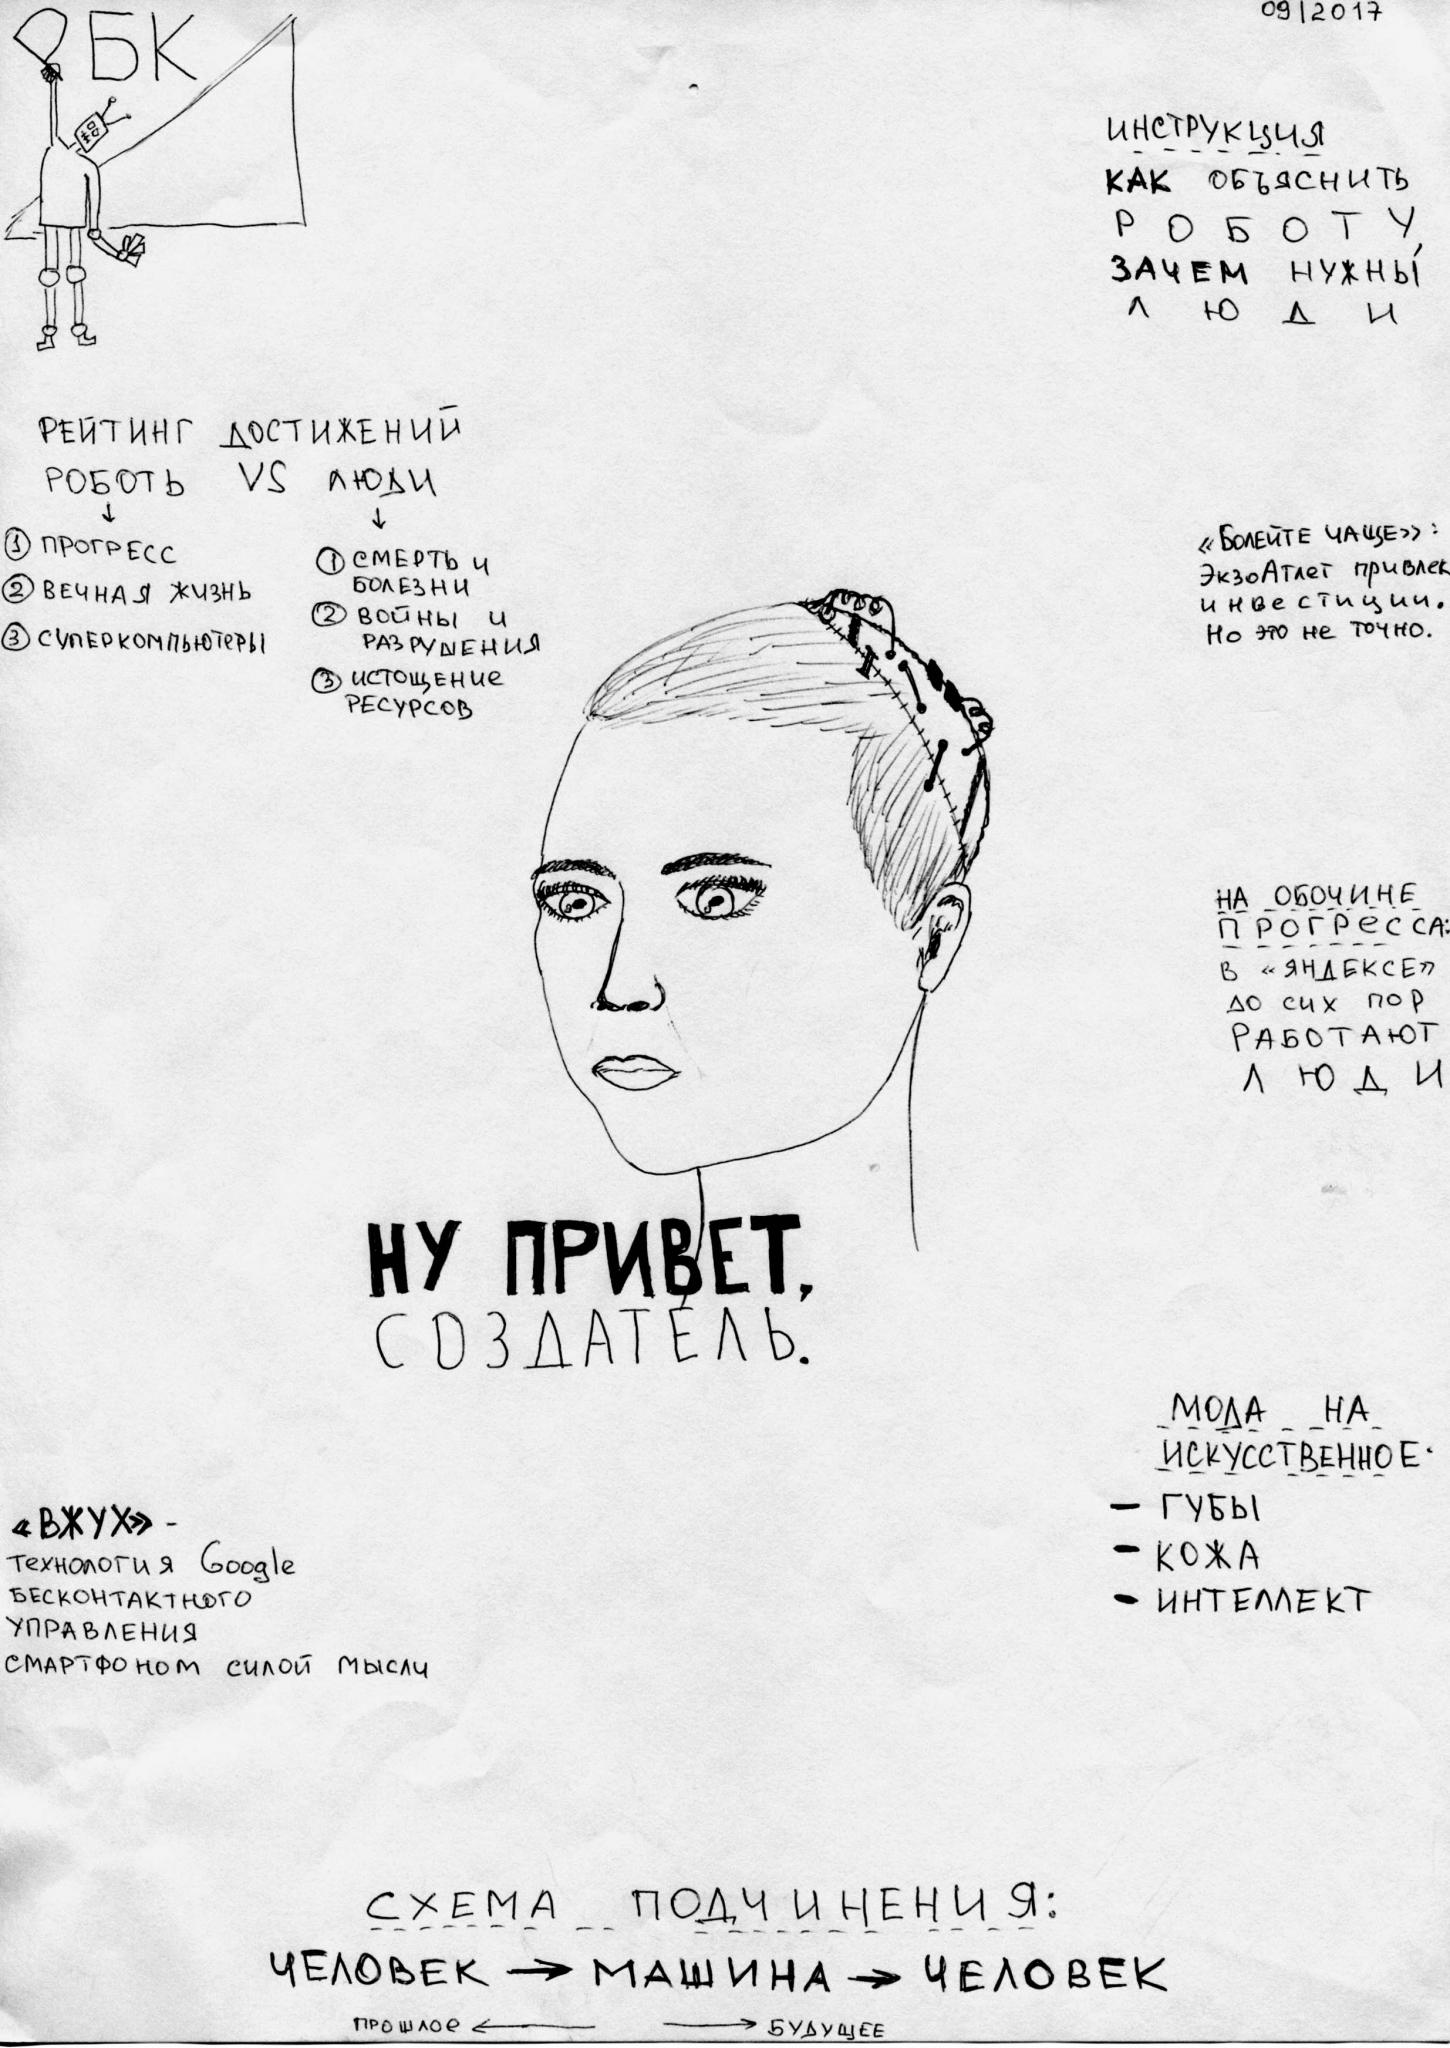 РБК
09|2017
ИНСТРУКЦИЯ
КАК ОБЪЯСНИТЬ
РОБОТУ,
ЗАЧЕМ НУЖНЫ
ЛЮДИ
РЕЙТИНГ ДОСТИЖЕНИЙ
РОБОТЬ VS ЛЮДИ
① ПРОГРЕСС
② ВЕЧНАЯ ЖИЗНЬ
③ СУПЕРКОМПЬЮТЕРЫ
① СМЕРТЬ И
БОЛЕЗНИ
② ВОЙНЫ И
РАЗРУШЕНИЯ
③ ИСТОЩЕНИЕ
РЕСУРСОВ
«БОЛЕЙТЕ ЧАЩЕ»:
ЭкзоАтлет привлек
инвестиции.
Но это не точно.
НА ОБОЧИНЕ
ПРОГРЕССА:
В «ЯНДЕКСЕ»
ДО СИХ ПОР
РАБОТАЮТ
ЛЮДИ
НУ ПРИВЕТ,
СОЗДАТЕЛЬ.
МОДА НА
ИСКУССТВЕННОЕ:
— ГУБЫ
— КОЖА
— ИНТЕЛЛЕКТ
«ВЖУХ» -
технология Google
БЕСКОНТАКТНОГО
УПРАВЛЕНИЯ
СМАРТФОНОМ СИЛОЙ МЫСЛИ
СХЕМА ПОДЧИНЕНИЯ:
ЧЕЛОВЕК → МАШИНА → ЧЕЛОВЕК
ПРОШЛОЕ ← → БУДУЩЕЕ